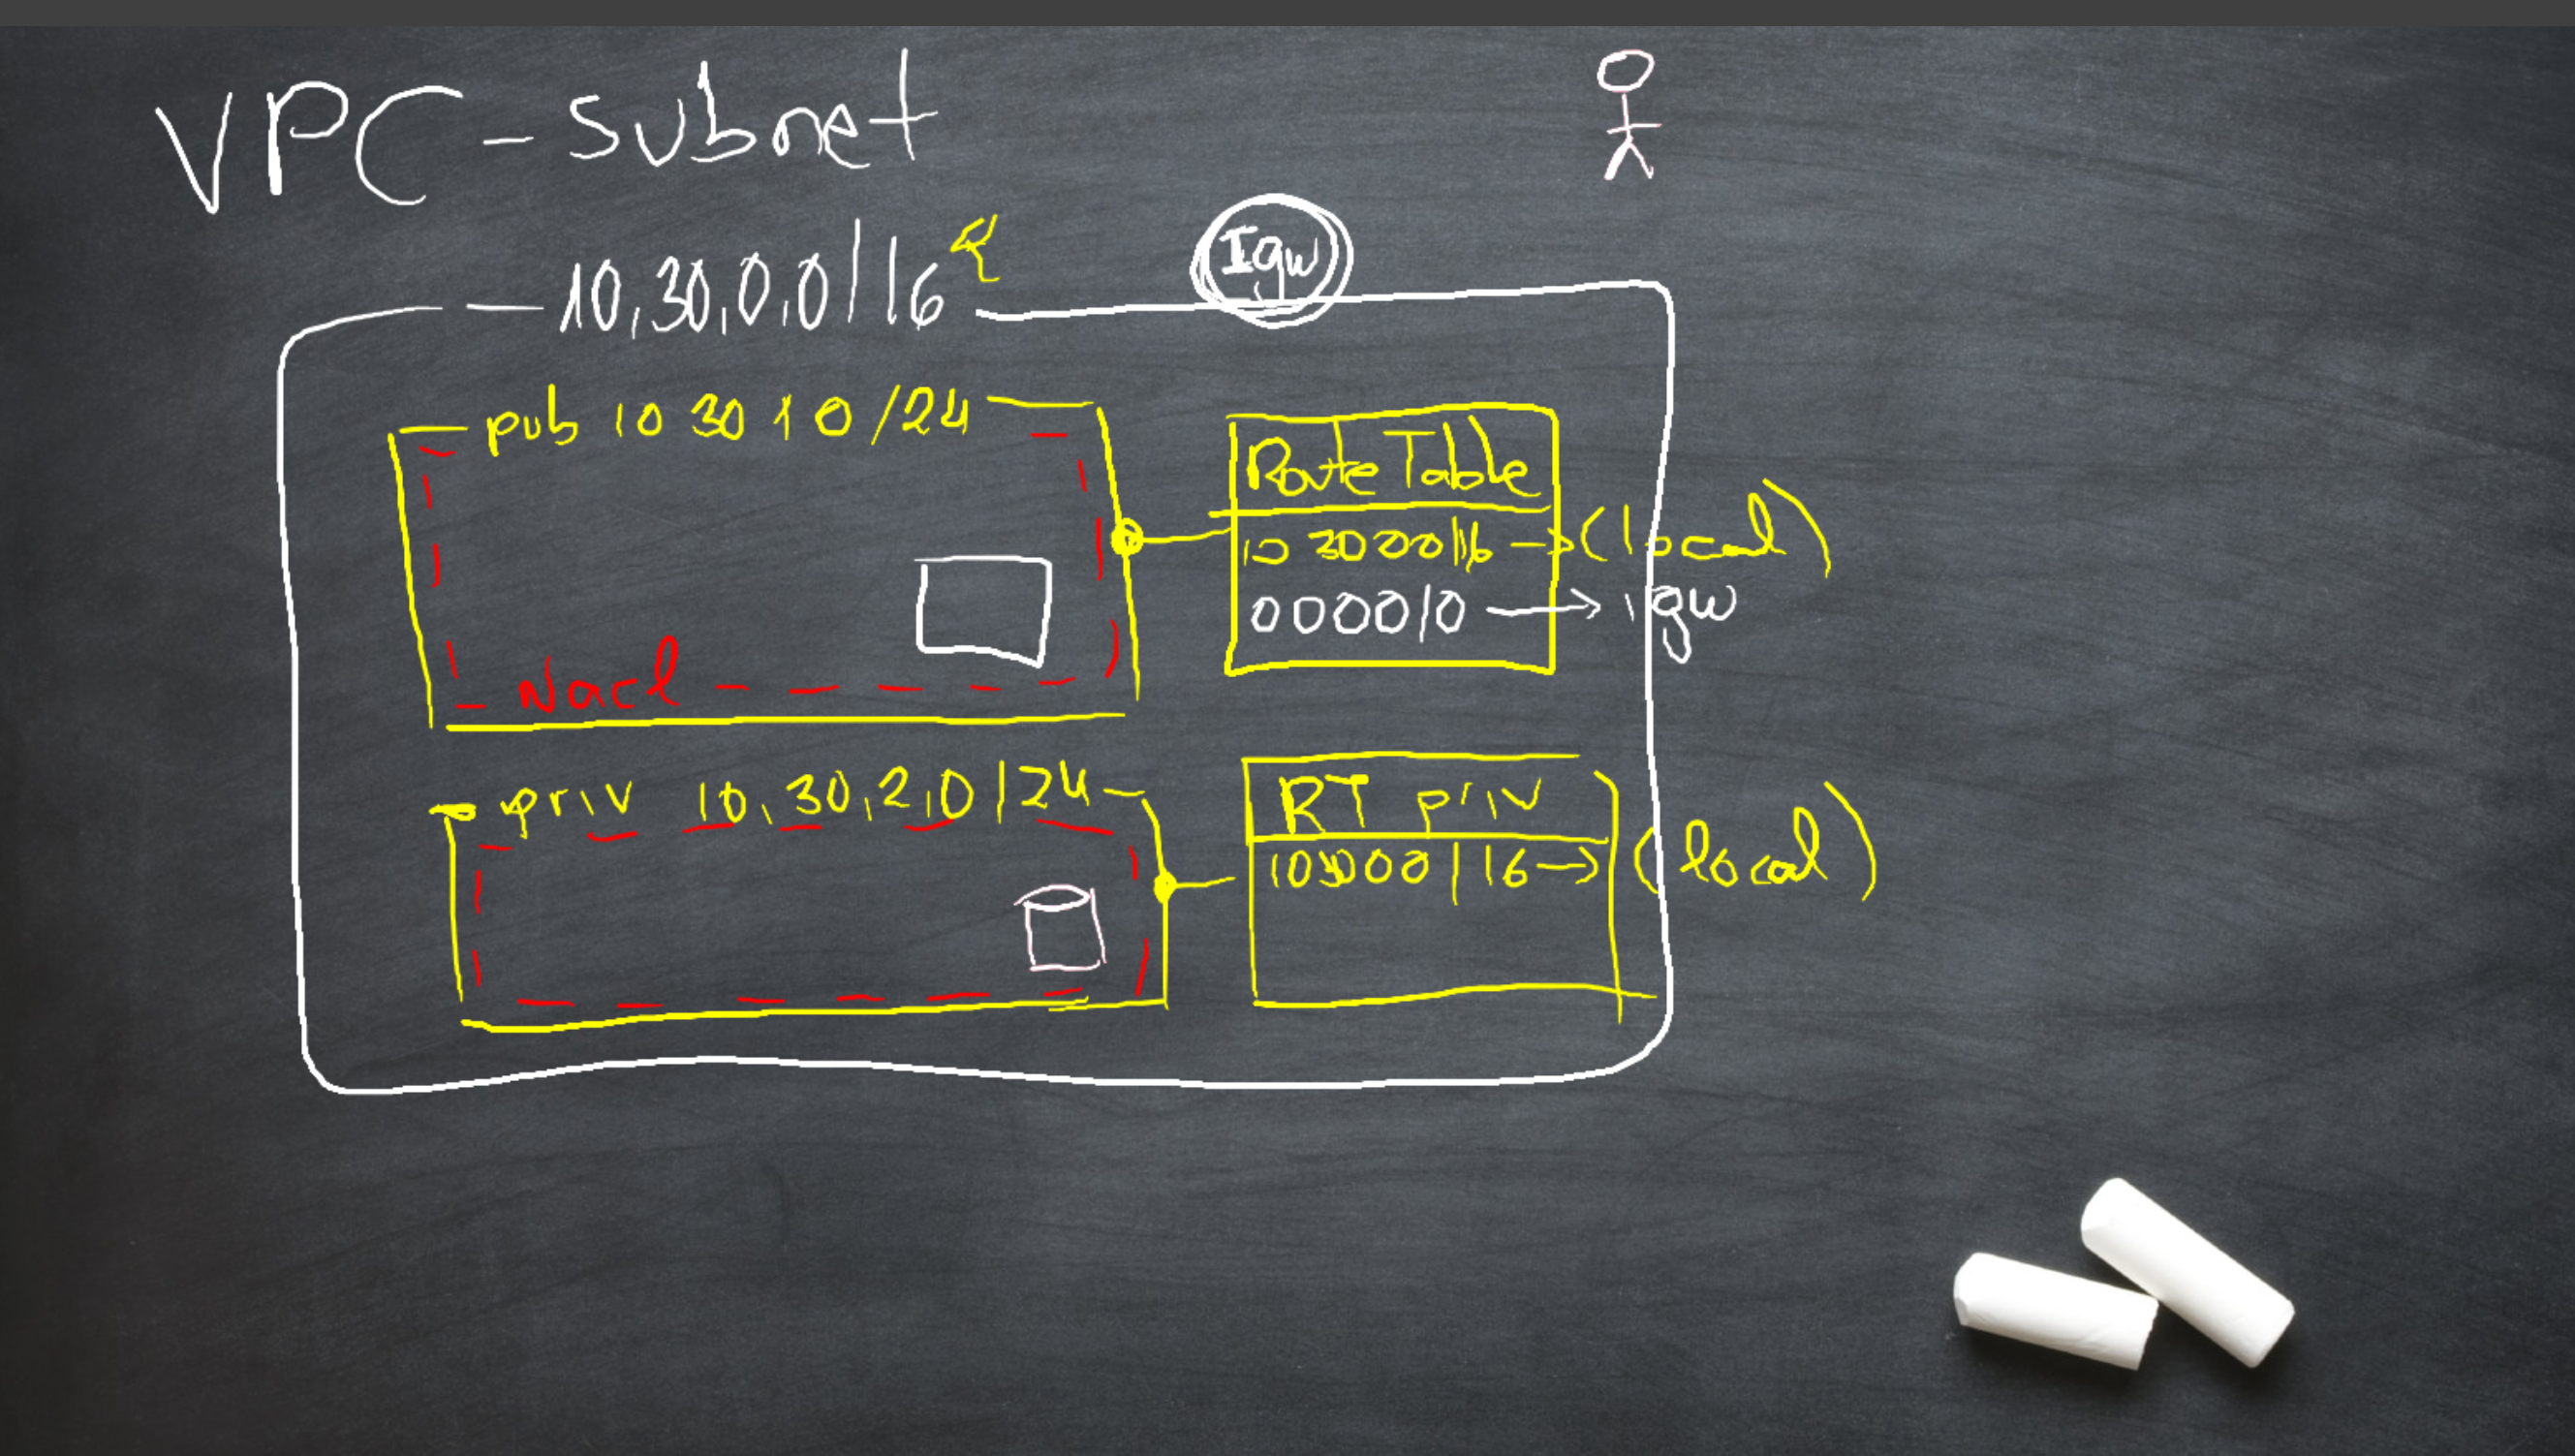 VPC - subnet
Igw
10,30,0,0/16
pub 10 30 1 0 /24
Route Table
10 30 0 0 /16 → (local)
0 0 0 0 / 0 → igw
Nacl
priv 10,30,2,0/24
RT priv
10 30 0 0 / 16 → (local)